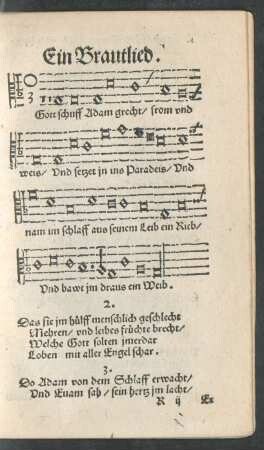 Ein Brautlied.
Gott schuff Adam grecht/ from vnd
weis/ Vnd setzet jn ins Paradeis/ Vnd
nam im schlaff aus seinem Leib ein Rieb/
Vnd bawt jm draus ein Weib.
2.
Das sie jm hülff menschlich geschlecht
Mehren/ vnd leibes früchte brecht/
Welche Gott solten jmerdar
Loben mit aller Engel schar.
3.
Do Adam von dem Schlaff erwacht/
Vnd Euam sah/ sein hertz im lacht/
R ij Er